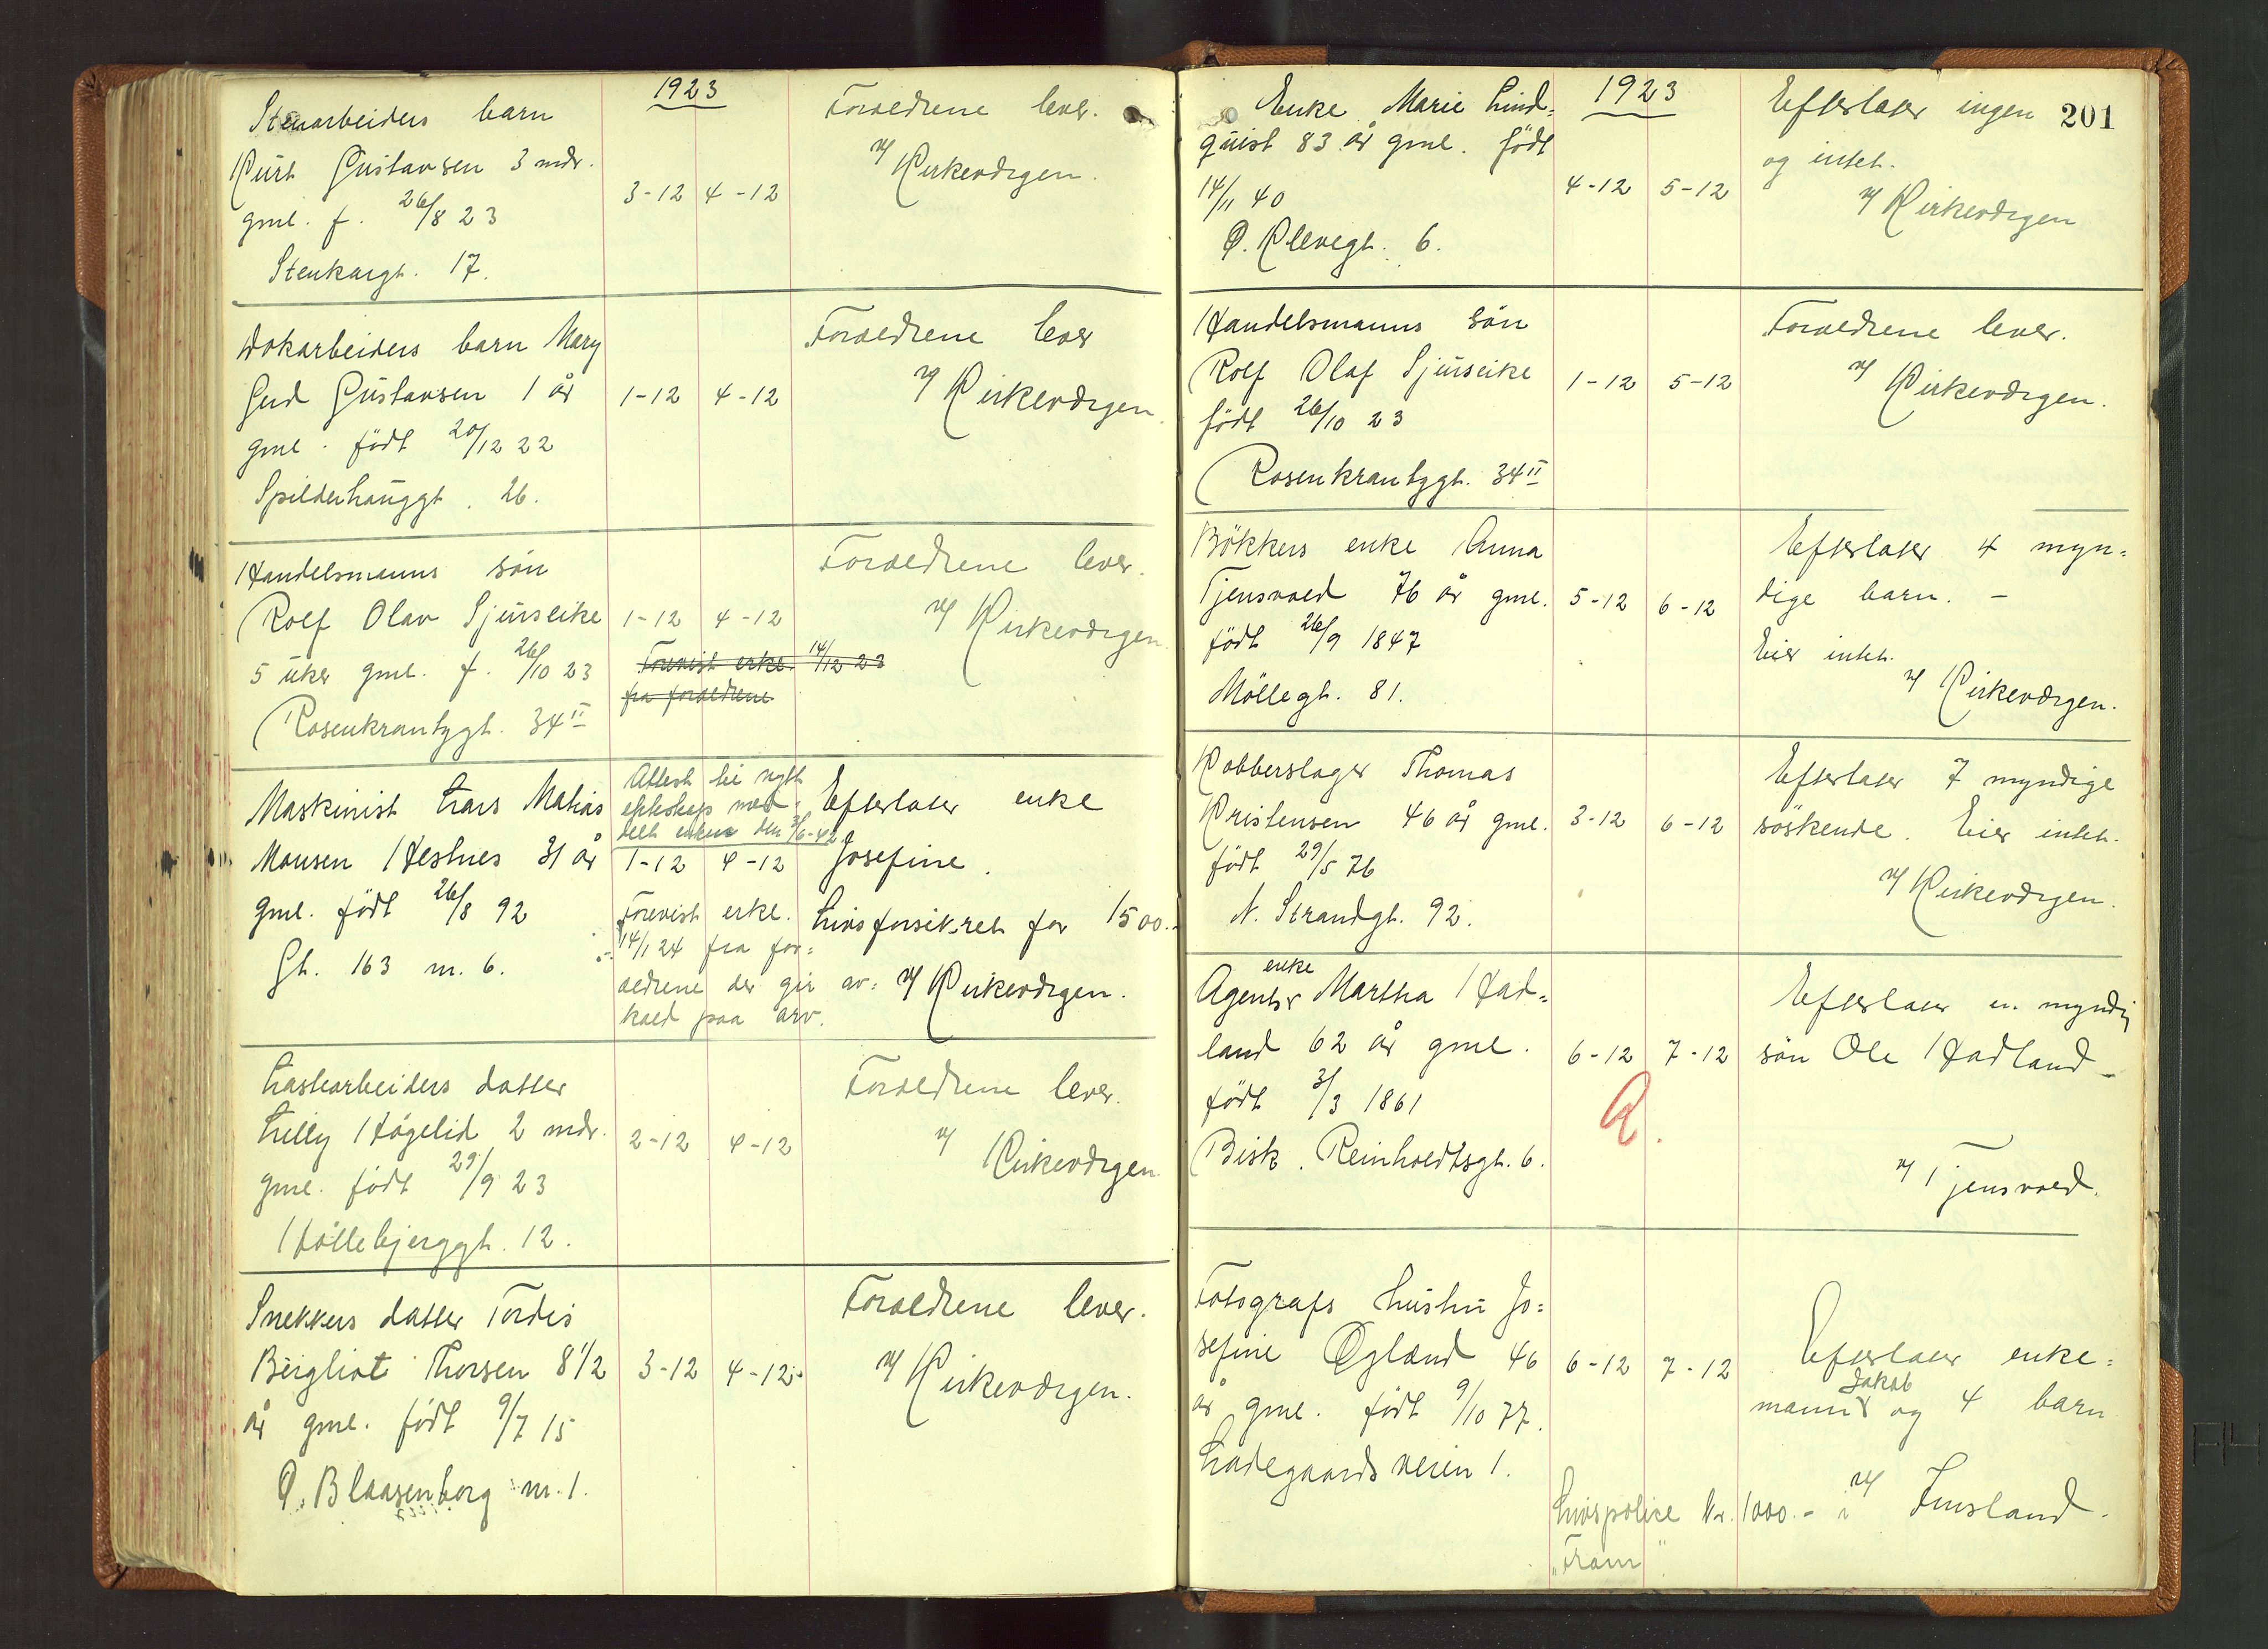 1923
Stenarbeiders barn
Kurt Gustavsen 3 mdr.
gml. f. 26/8 23
Stenkargt. 17.
3-12 4-12
Foreldrene lever.
v/ Kirkevergen.
Dokarbeiders barn Mary
Gerd Gustavsen 1 år
gml. født 20/12 22
Spilderhauggt. 26.
1-12 4-12
Foreldrene lever
v/ Kirkevergen.
Handelsmanns søn
Rolf Olav Sjurseike
5 uker gml. f. 26/10 23
Rosenkrantzgt. 34 II
1-12 4-12
Forevist erkl. 14/12 23
fra foreldrene
Foreldrene lever.
v/ Kirkevergen
Maskinist Lars Matias
Monsen Hestnes 31 år
gml. født 26/8 92
Gt. 163 nr. 6.
Attest til nytt
ekteskap med-
delt enken den 3/6-42
1-12 4-12
Forevist erkl.
14/1 24 fra for-
eldrene der gir av-
kald paa arv.
Efterlater enke
Josefine.
Livsforsikret for 1500.-
v/ Kirkevergen.
Lastearbeiders datter
Lilly Høgelid 2 mdr.
gml. født 29/9 23
Høllebjerggt. 12.
2-12 4-12
Foreldrene lever.
v/ Kirkevergen
Snekkers datter Tordis
Bergliot Thorsen 8 1/2
år gml. født 9/7 15
Ø. Blaasenborg nr. 1.
3-12 4-12
Foreldrene lever.
v/ Kirkevergen.
201
1923
Enke Marie Lind-
quist 83 år gml. født
14/11 40
Ø. Klevegt. 6.
4-12 5-12
Efterlater ingen
og intet.
v/ Kirkevergen
Handelsmanns søn
Rolf Olaf Sjurseike
født 26/10 23
Rosenkrantzgt. 34 II
1-12 5-12
Foreldrene lever.
v/ Kirkevergen.
Bøkkers enke Anna
Tjensvold 76 år gml.
født 26/9 1847
Møllegt. 81.
5-12 6-12
Efterlater 4 myn-
dige barn. -
Eier intet.
v/ Kirkevergen.
Kobberslager Thomas
Kristensen 46 år gml.
født 29/5 76
N. Strandgt. 92.
3-12 6-12
Efterlater 7 myndige
søskende. Eier intet.
v/ Kirkevergen.
enke
Agents Martha Had-
land 62 år gml.
født 3/3 1861
Bisk. Reinholdtsgt. 6.
6-12 7-12
Efterlater en myndig
søn Ole Hadland -
v/ Tjensvold.
Fotografs hustru Jo-
sefine Øgland 46
år gml. født 9/10 77.
Ladegaardsveien 1.
6-12 7-12
Efterlater enke-
Jakob
mann og 4 barn
v/ Finsland.
Livspolice kr. 1000.- i
"Fram"